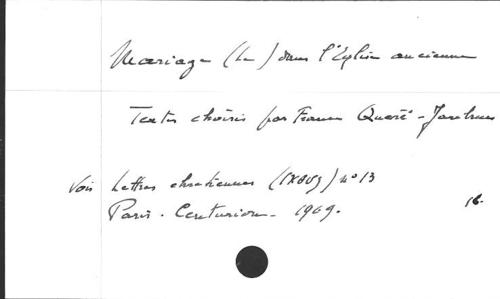 Mariage (Le) dans l'Eglise ancienne
Textes choisis par France Quéré-Jaulmes
Voir Lettres chrétiennes (Ιχθυς) n° 13
Paris. Centurion. 1969.
16.